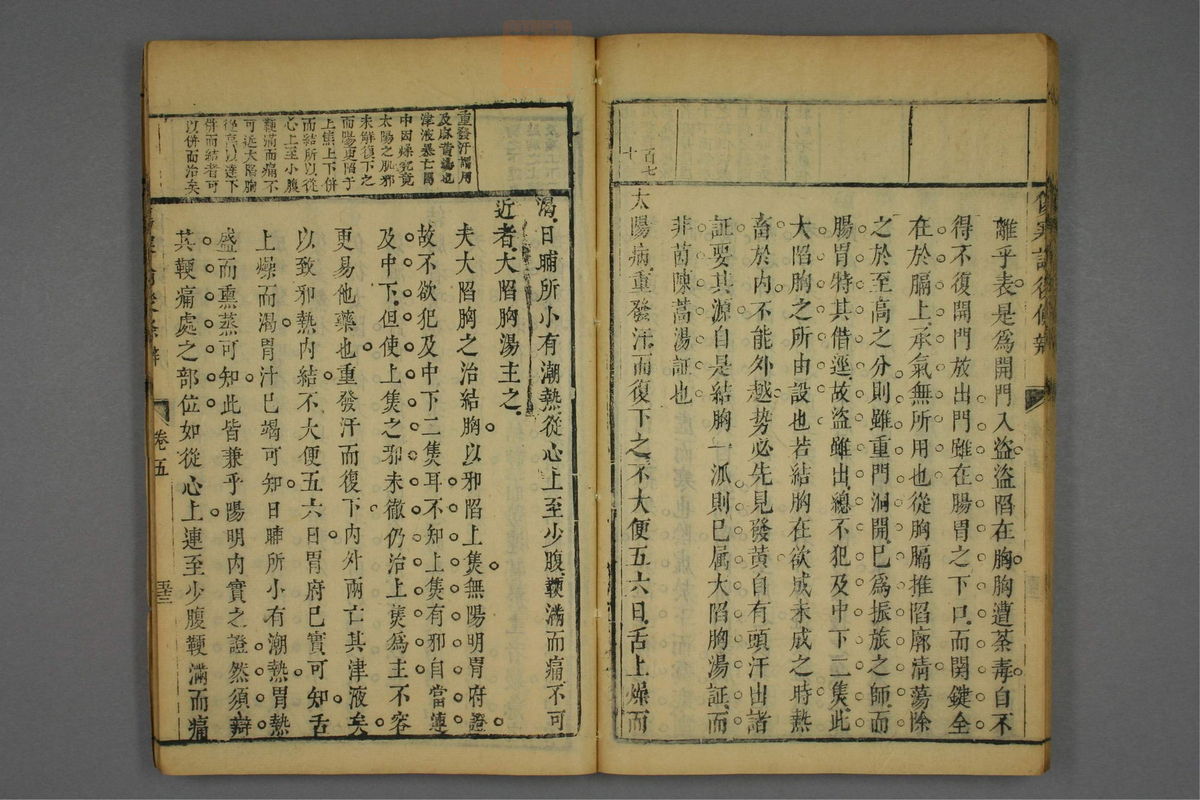 傷寒論後條辨
離乎表是為開門入盜盜陷在胸胸遭荼毒自不
得不復開門放出門雖在腸胃之下口而関鍵全
在於膈上承氣無所用也從胸膈推陷廓清蕩除
之於至高之分則雖重門洞開已為振旅之師而
腸胃特其借逕故盜雖出總不犯及中下二焦此
大陷胸之所由設也若結胸在欲成未成之時熱
畜於内不能外越势必先見發黃自有頭汗出諸
証要其源自是結胸一派則已属大陷胸湯証而
非茵陳蒿湯証也
百七
十
太陽病重發汗而復下之不大便五六日舌上燥而
渴日晡所小有潮熱從心上至少腹鞕滿而痛不可
近者大陷胸湯主之
夫大陷胸之治結胸以邪陷上焦無陽明胃府證
故不欲犯及中下二焦耳不知上焦有邪自當連
及中下但使上焦之邪未徹仍治上焦為主不容
更易他藥也重發汗而復下内外兩亡其津液矣
以致邪熱内結不大便五六日胃府已實可知舌
上燥而渴胃汁已竭可知日晡所小有潮熱胃熱
盛而熏蒸可知此皆兼乎陽明内實之證然須辯
其鞕痛處之部位如從心上連至少腹鞕滿而痛
重發汗謂用
及麻黃湯也
津液暴亡胃
中因燥究竟
太陽之肌邪
未解復下之
而陽更陷于
上焦上下併
而結所以從
心上至小腹
鞕滿而痛不
可近大陷胸
從高以達下
併而結者可
以併而治矣
卷五